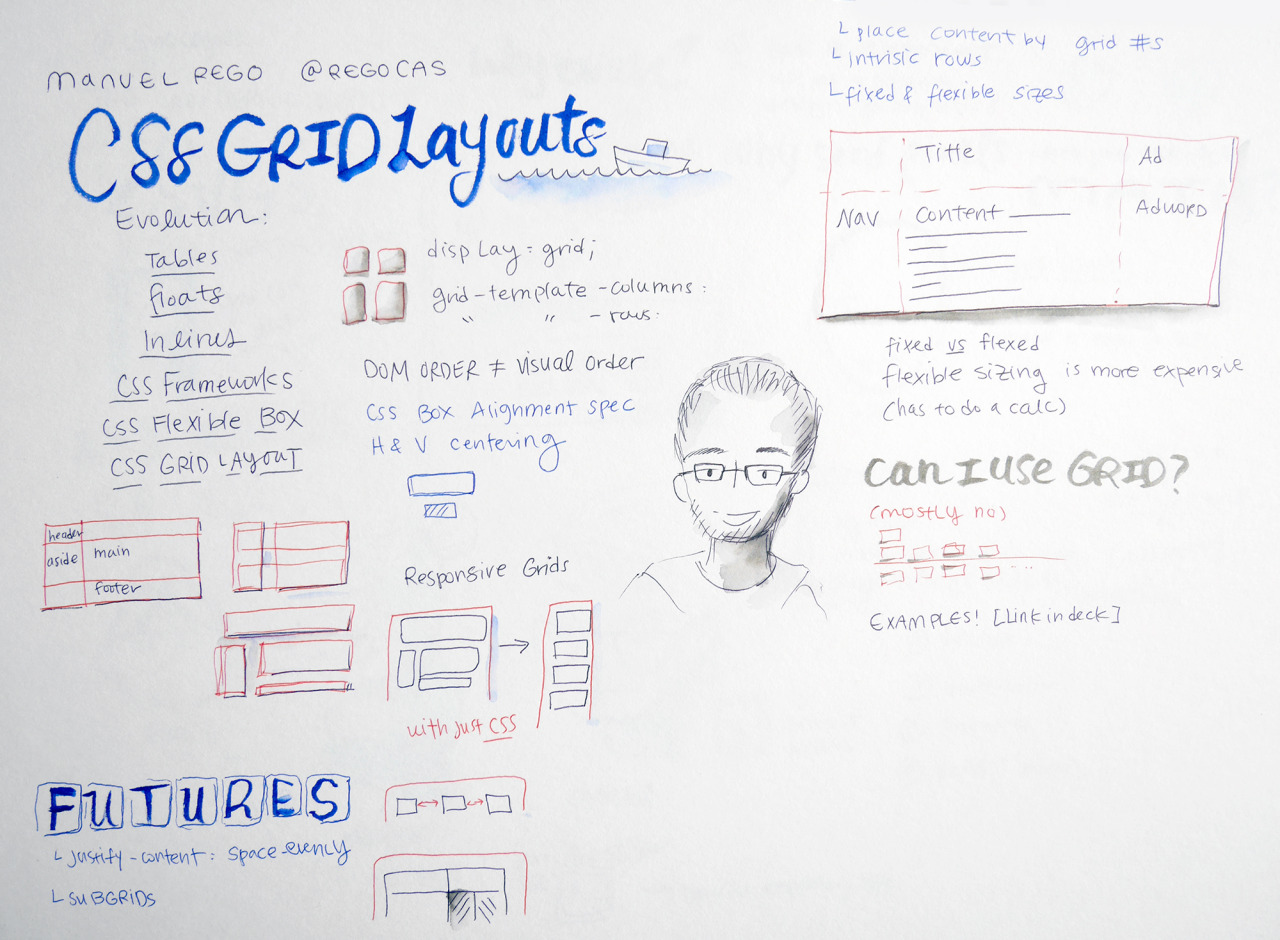 MANUEL REGO @REGOCAS
CSS GRID Layouts
Evolution:
Tables
floats
Inlines
CSS Frameworks
CSS Flexible Box
CSS GRID LAYOUT
display: grid;
grid-template-columns:
" " -rows:
DOM ORDER ≠ visual order
CSS Box Alignment spec
H & V centering
header
aside main
footer
Responsive Grids
with just CSS
FUTURES
└ justify-content: space-evenly
└ SUBGRIDS
└ place content by grid #s
└ intrisic rows
└ fixed & flexible sizes
Title Ad
Nav Content Adword
fixed vs flexed
flexible sizing is more expensive
(has to do a calc)
Can I use GRID?
(mostly no)
EXAMPLES! [Link in deck]